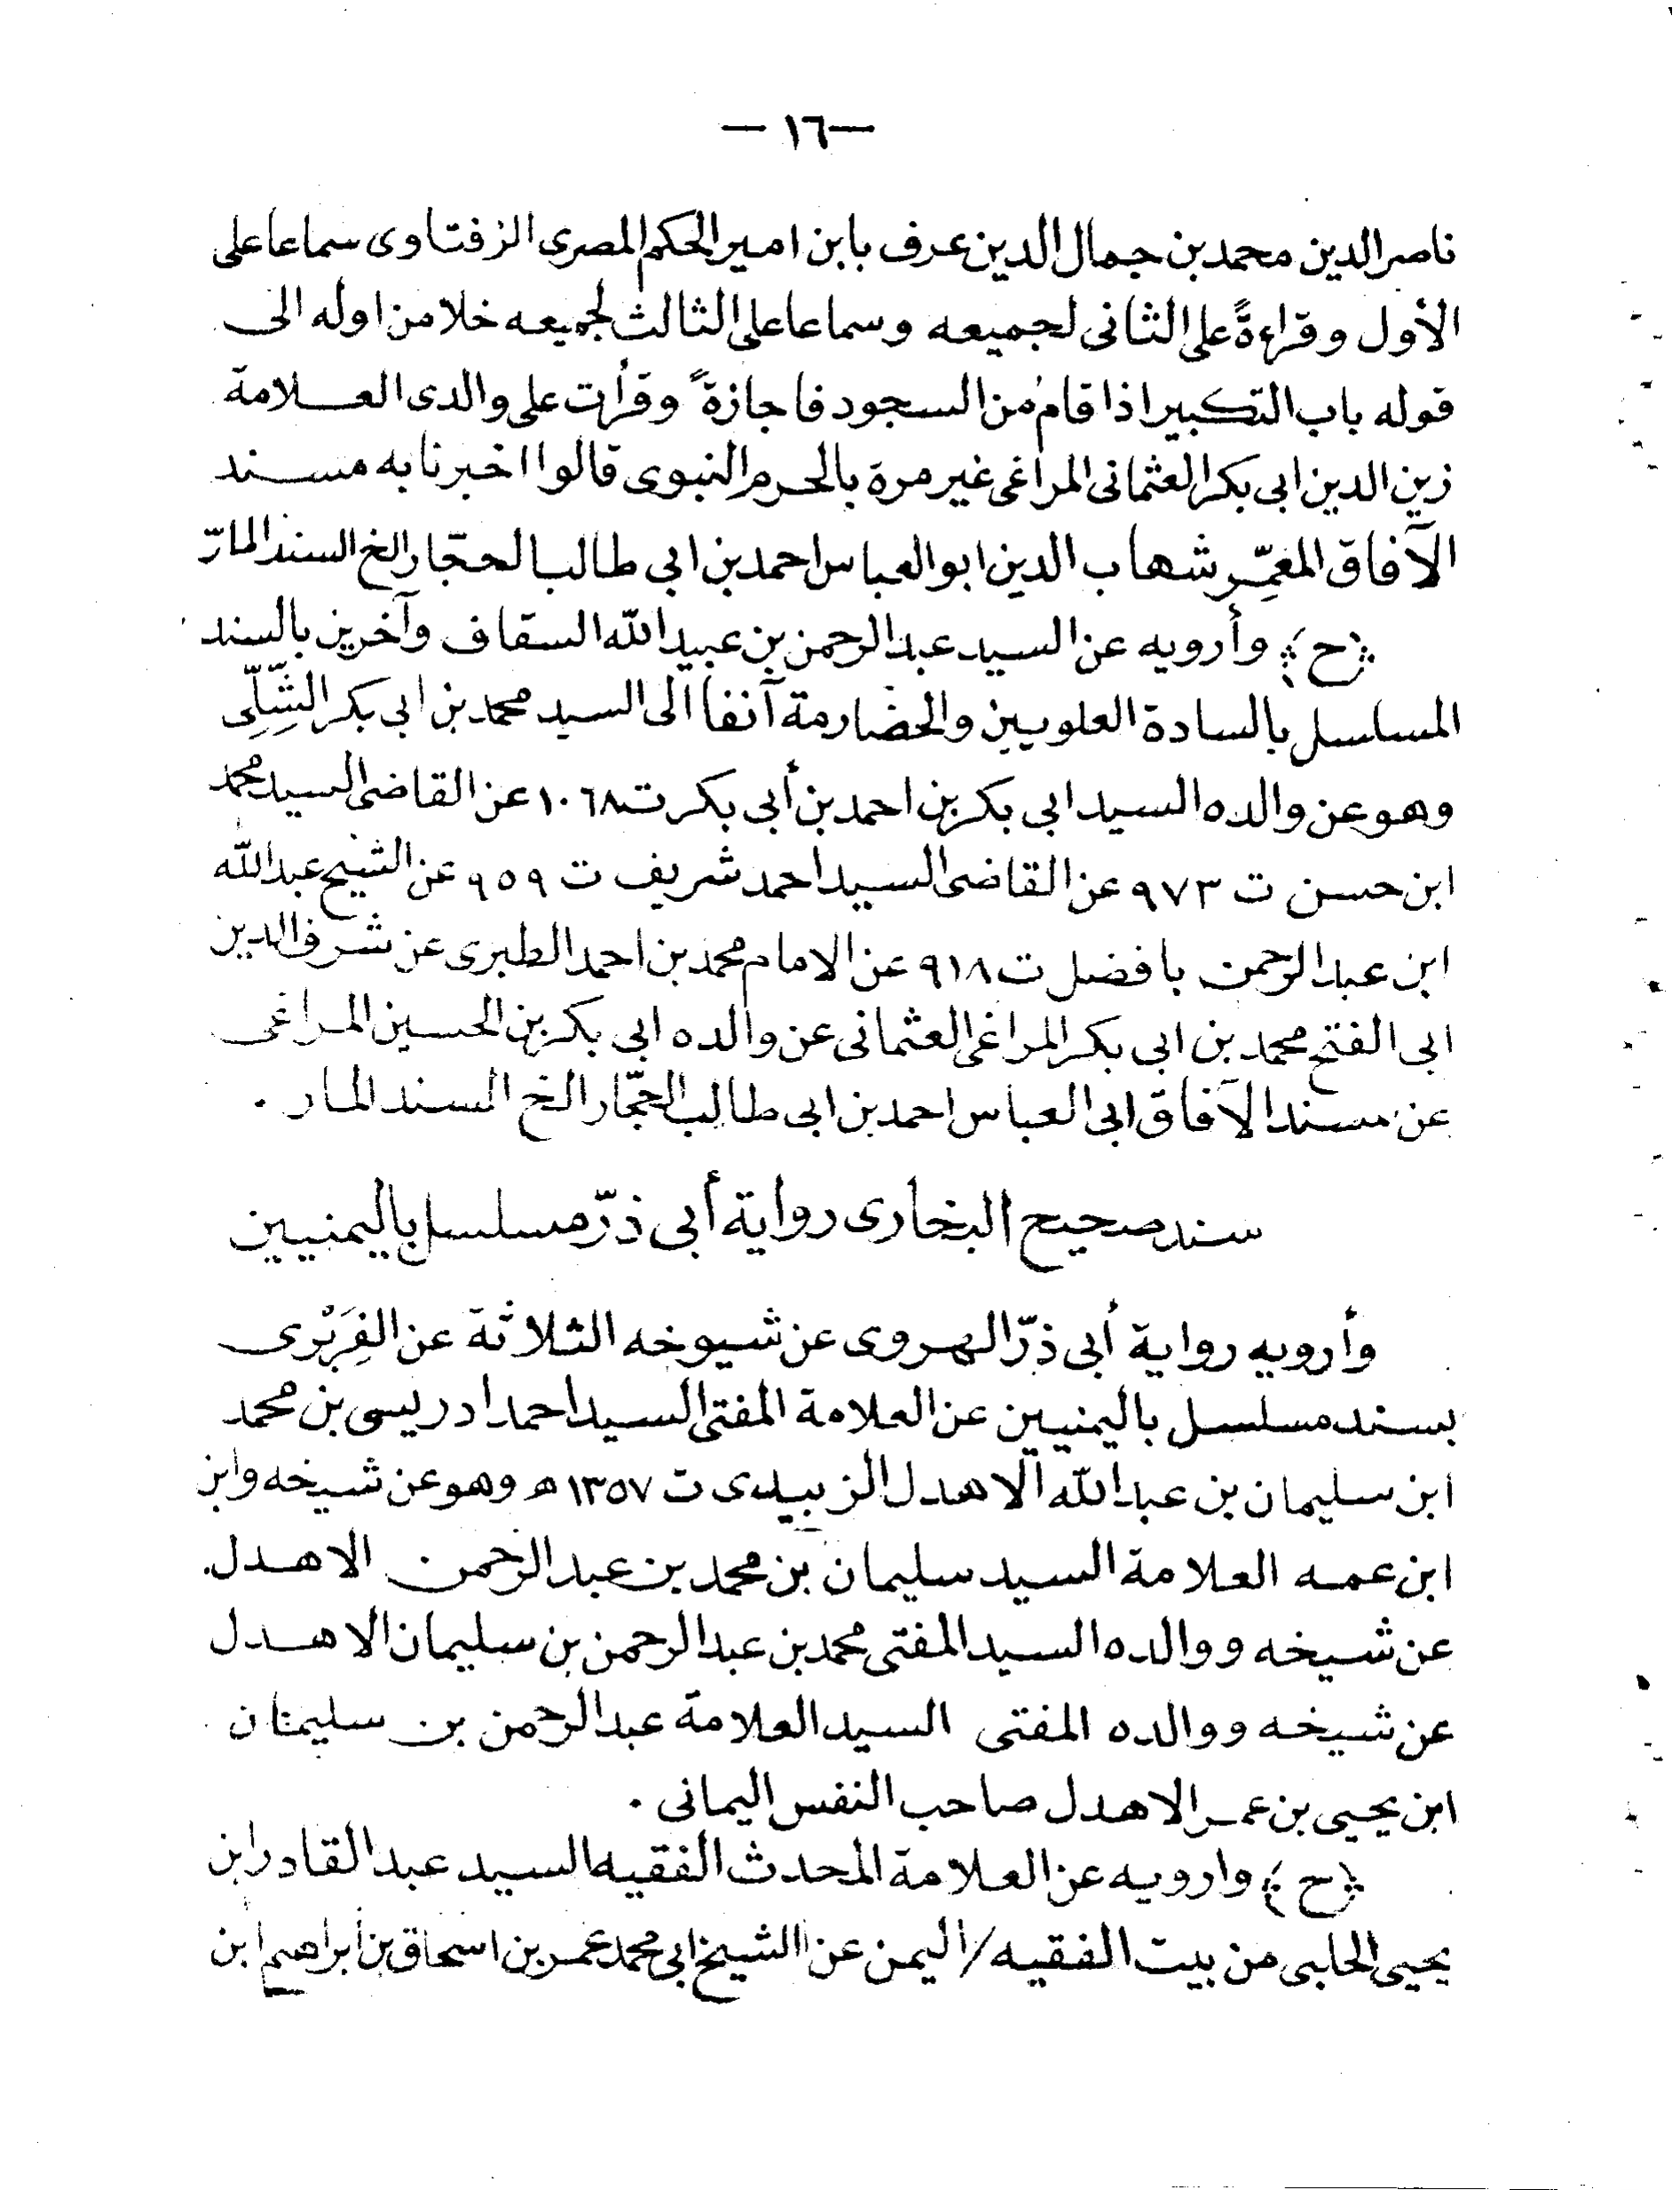 —١٦ —
ناصر الدين محمد بن جمال الدين عرف بابن امير الحكم المصرى الزفتاوى سماعا على
الأول وقراءةً على الثانى لجميعه وسماعا على الثالث لجميعه خلا من اوله الى
قوله باب التكبير اذا قام من السجود فاجازةً وقرأت على والدى العلامة
زين الدين ابى بكر العثمانى المراغى غير مرة بالحرم النبوى قالوا اخبرنا به مسند
الآفاق المعمّر شهاب الدين ابو العباس احمد بن ابى طالب الحجّار الخ السند المارّ
﴿ح﴾ وأرويه عن السيد عبد الرحمن بن عبيد الله السقاف وآخرين بالسند
المسلسل بالسادة العلويين والحضارمة آنفا الى السيد محمد بن ابى بكر الشِّلِّى
وهو عن والده السيد ابى بكر بن احمد بن أبى بكر ت ١٠٦٨ عن القاضى السيد محمد
ابن حسن ت ٩٧٣ عن القاضى السيد احمد شريف ت ٩٥٩ عن الشيخ عبد الله
ابن عبد الرحمن بافضل ت ٩١٨ عن الامام محمد بن احمد الطبرى عن شرف الدين
ابى الفتح محمد بن ابى بكر المراغى العثمانى عن والده ابى بكر بن الحسين المراغى
عن مسند الآفاق ابى العباس احمد بن ابى طالب الحجّار الخ السند المار .
سند صحيح البخارى رواية أبى ذرّ مسلسل باليمنيين
وأرويه رواية أبى ذرّ الهروى عن شيوخه الثلاثة عن الفِرَبْرى
بسند مسلسل باليمنيين عن العلامة المفتى السيد احمد ادريسى بن محمد
ابن سليمان بن عبد الله الاهدل الزبيدى ت ١٣٥٧ ه وهو عن شيخه وابن
ابن عمه العلامة السيد سليمان بن محمد بن عبد الرحمن الاهدل
عن شيخه ووالده السيد المفتى محمد بن عبد الرحمن بن سليمان الاهدل
عن شيخه ووالده المفتى السيد العلامة عبد الرحمن بن سليمان
ابن يحيى بن عمر الاهدل صاحب النفس اليمانى .
﴿ح﴾ وارويه عن العلامة المحدث الفقيه السيد عبد القادر ابن
يحيى الحلبى من بيت الفقيه/اليمن عن الشيخ ابى محمد عمر بن اسحاق بن ابراهيم ابن